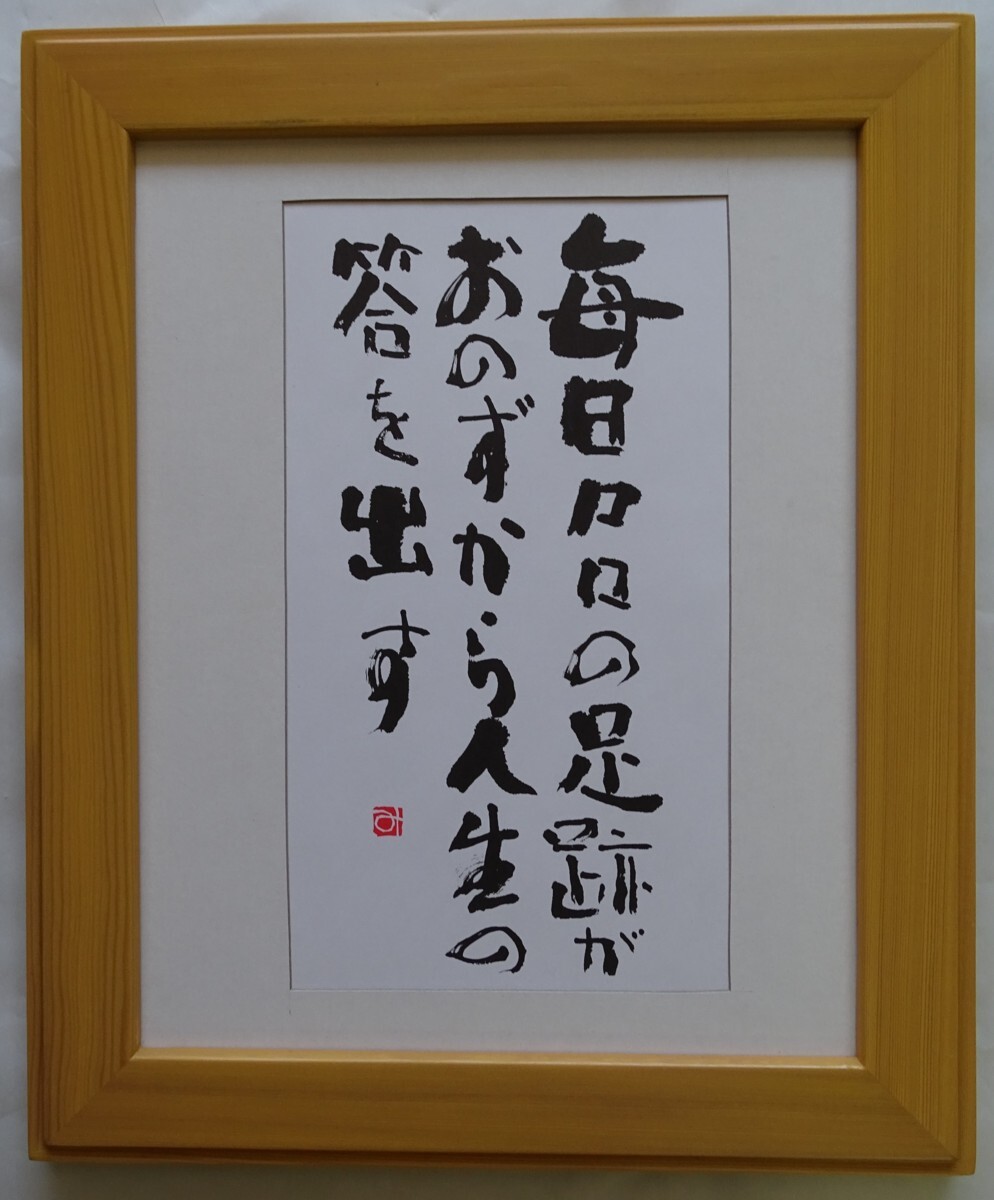 毎日日日の足跡が
おのずから人生の
答を出す
み